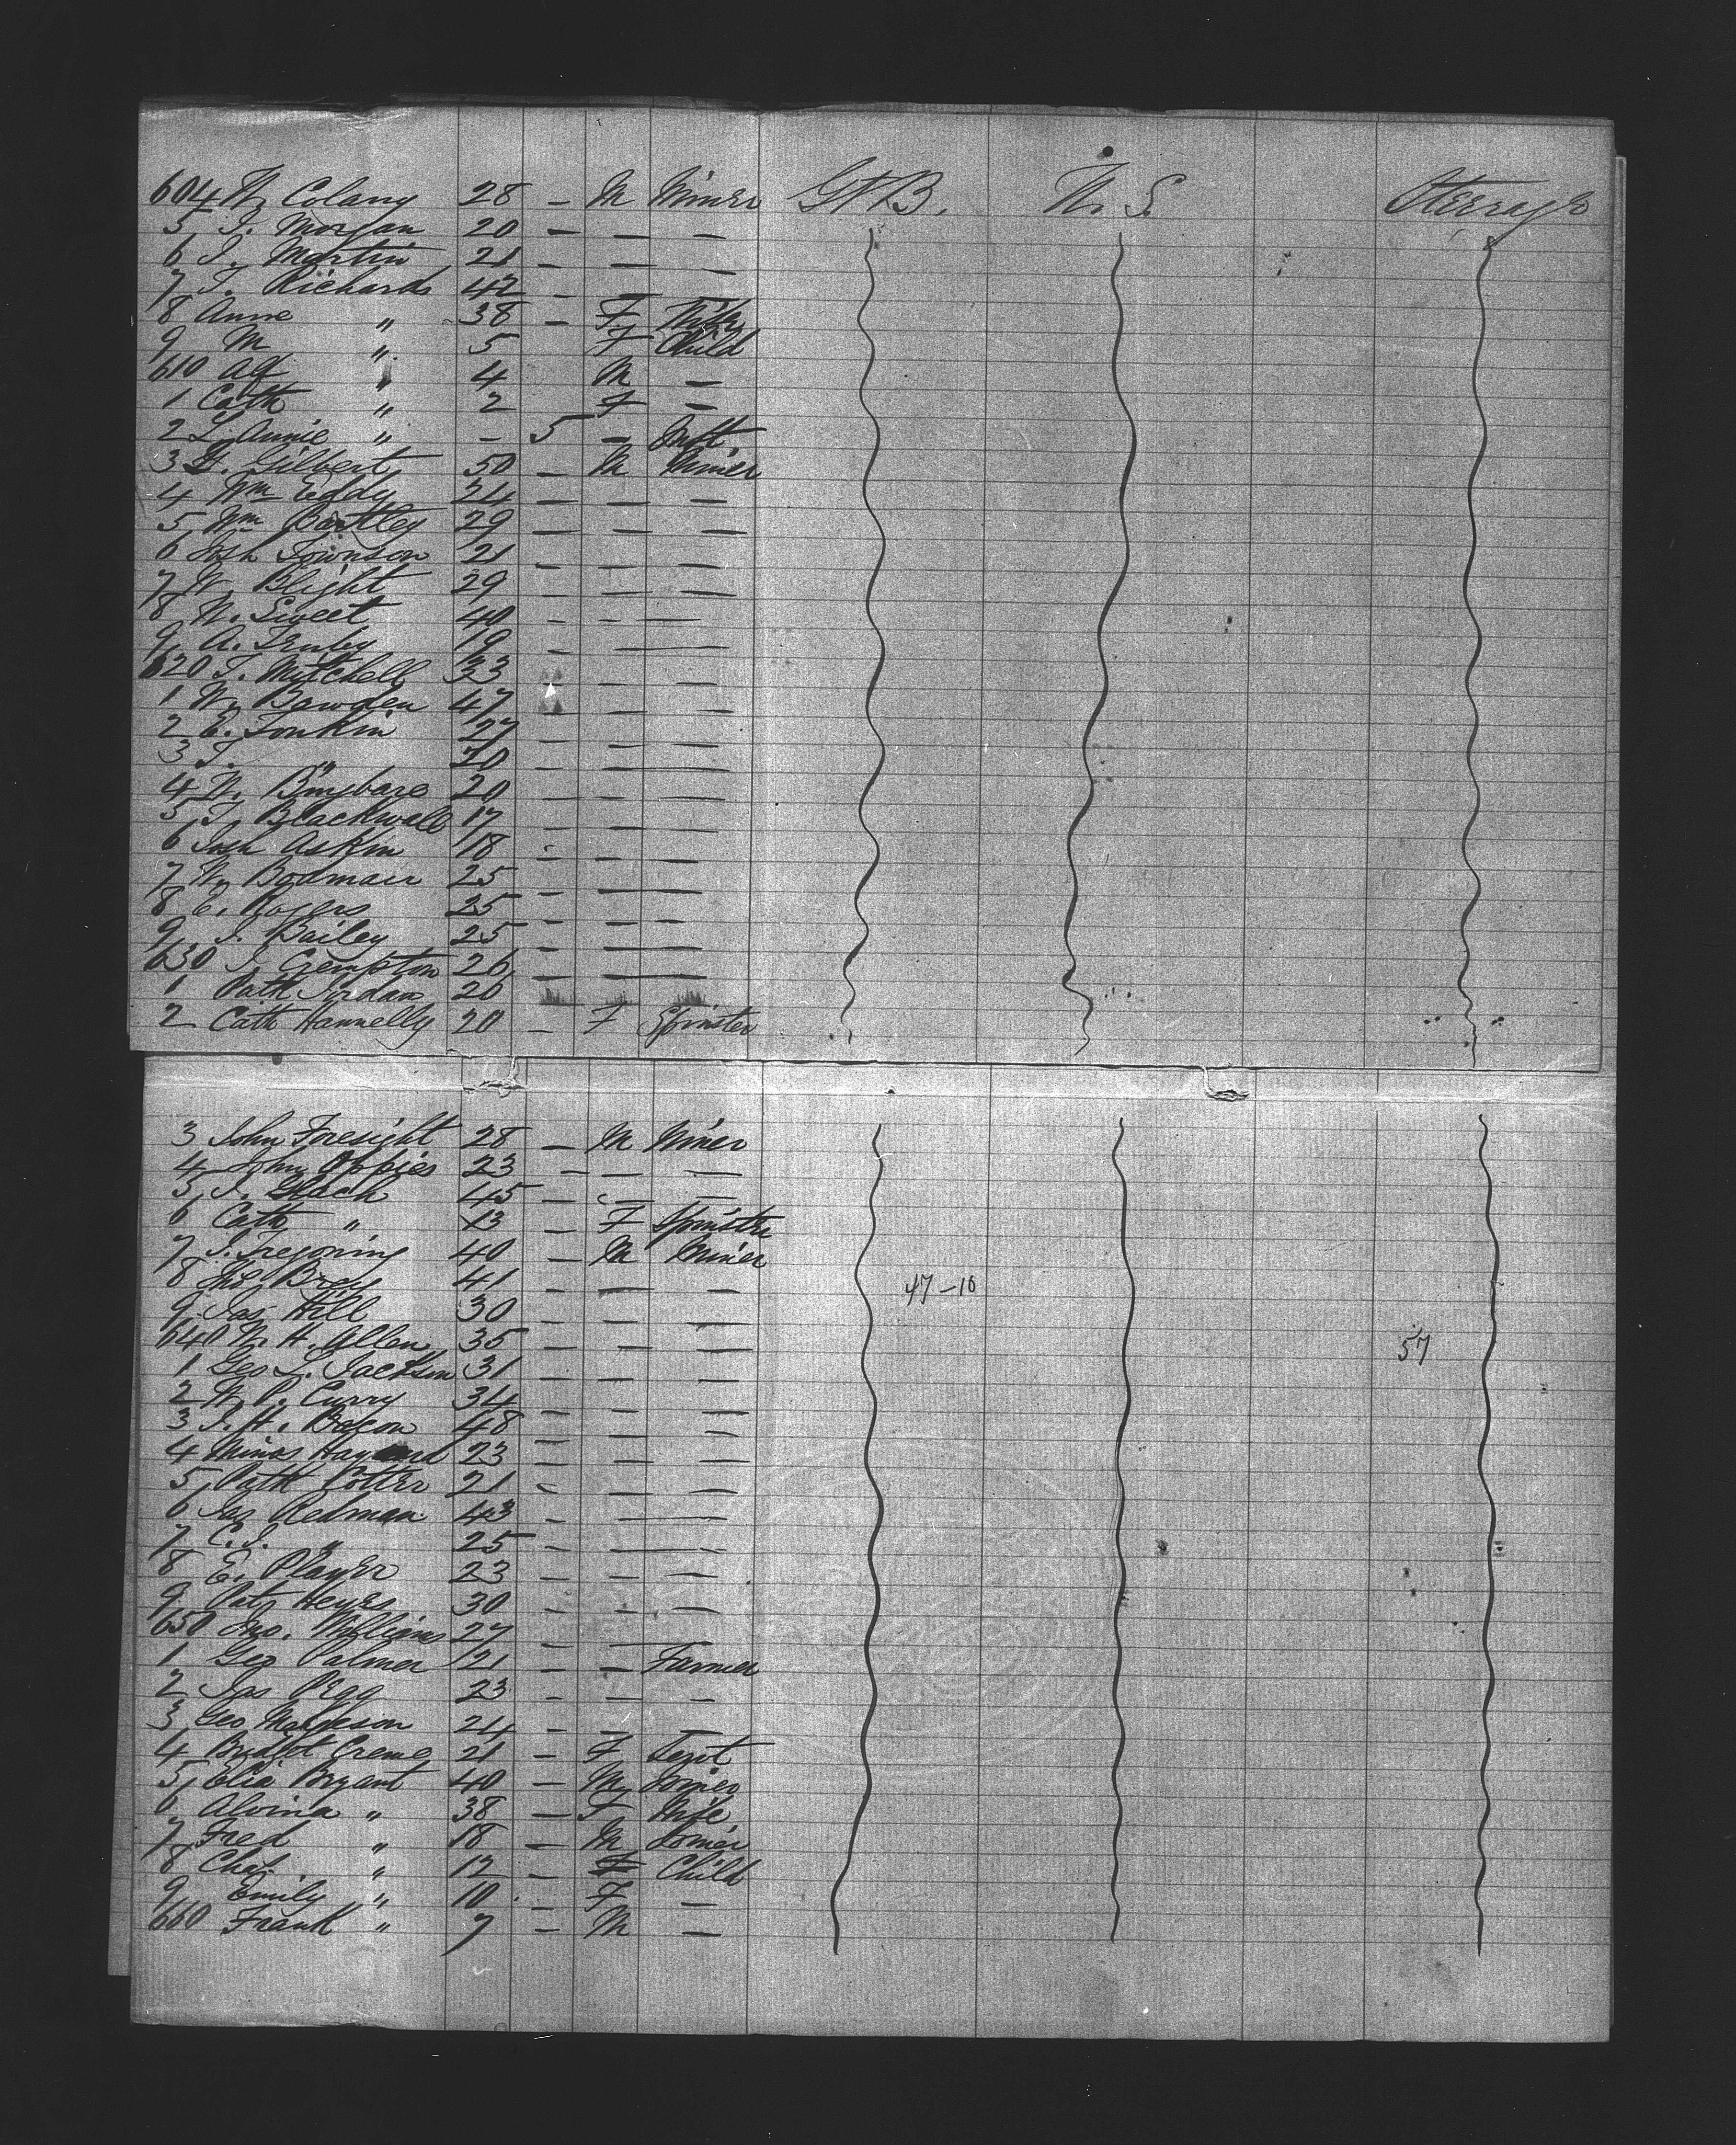 604 W. Colany 28 - M Miner Gt B. U. S. Steerage
5 J. Morgan 20 - - -
6 J. Martin 21 - - -
7 T. Richards 42 - - -
8 Anne " 38 - F Wife
9 M " 5 F Child
610 " 4 M -
1 Cath " 2 F -
2 L. Annie " - 5 - Inft
3 Gilbert 50 - M Miner
4 Wm Eddy 24 - - -
5 Wm Bartley 29 - - -
6 Josh Townson 21 - - -
7 W. Blight 29 - - -
8 W. Sweet 40 - - -
9 A. 19 - - -
620 T. Mitchell 33 - -
1 W. Bawden 47 - -
2 E. Tonkin 27 - - -
3 T. " 20 - - -
4 W. 20 - - -
5 T. Blackwall 17 - - -
6 Josh Askin 18 - - -
7 W. 25 - - -
8 E. Rogers 25 - - -
9 J. Bailey 25 - - -
630 J. 26 - - -
1 Path Jordan 20
2 Cath Hannelly 20 - F Spinster
3 John Foresight 28 - M Miner
4 John Oppies 23 - - -
5 J. 45 - - -
6 Cath " 13 - F Spinster
7 J. Tregoning 40 - M Miner
8 Thos Bray 41 - - - 47-10
9 Jas Hill 30 - - -
640 W. H. Allen 35 - - - 57
1 Geo L. Jackson 31 - - -
2 W. P. Curry 34 - - -
3 J. H. Bacon 48 - - -
4 23 - - -
5 Path Potter 21 - - -
6 Jas Redman 43 - - -
7 C. J. " 25 - - -
8 E. Player 23 - - -
9 Pat Heyes 30 - - -
650 Jno. Williams 27 - - -
1 Geo Palmer 21 - - Farmer
2 Jas Pegg 23 - - -
3 Geo 24 - - -
4 Bridget 21 - F Servt
5 Elia Bryant 40 - M
6 Alvina " 38 - F Wife
7 Fred " 18 - M
8 Chas " 12 - Child
9 Emily " 10 - F -
660 Frank " 7 - M -